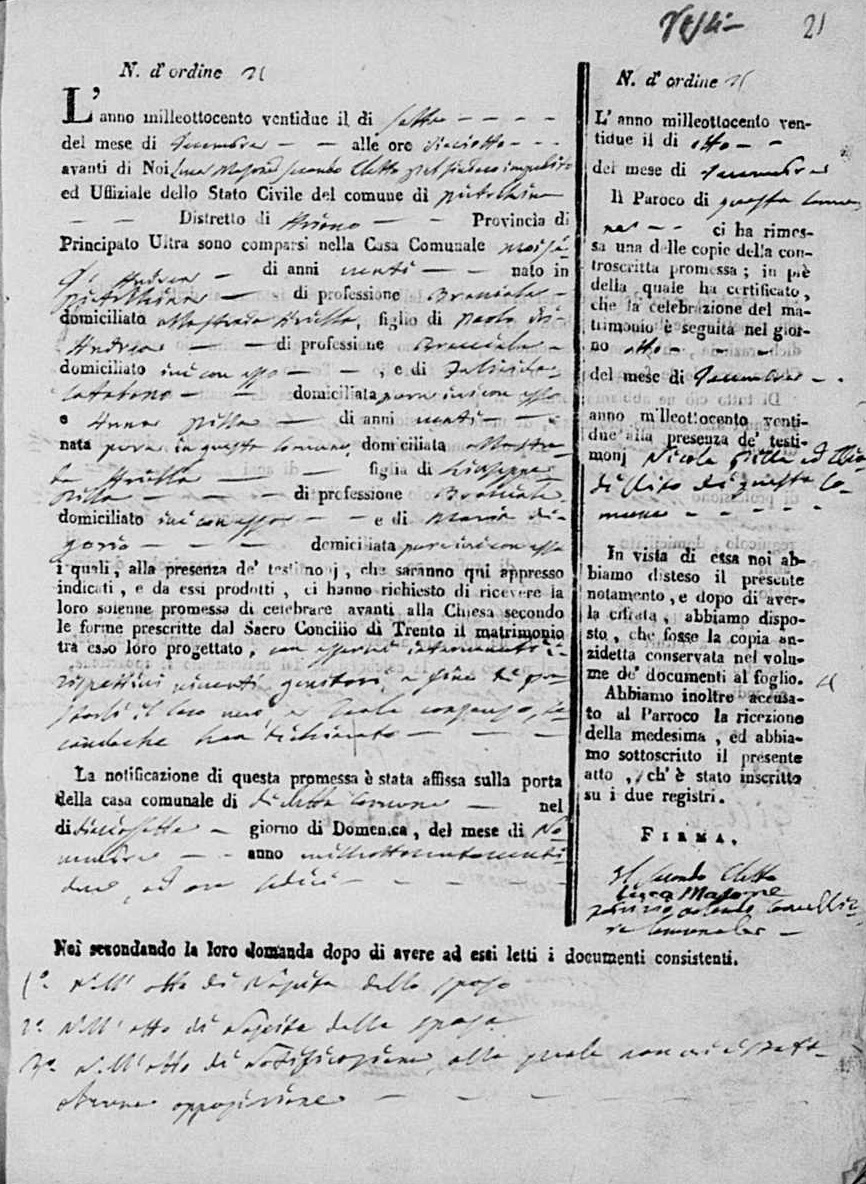 21
N. d'ordine 21
L'anno milleottocento ventidue il di sette
del mese di Decembre alle ore dieciotto
avanti di Noi Luca Masone secondo Eletto pel Sindaco impedito
ed Uffiziale dello Stato Civile del comune di Pietrelcina
Distretto di Ariano Provincia di
Principato Ultra sono comparsi nella Casa Comunale
d'Andrea di anni venti nato in
Pietrelcina di professione Bracciale
domiciliato alla strada figlio di Paolo di
Andrea di professione Bracciale
domiciliato ivi con esso , e di Felicita
domiciliata pure ivi con esso
e Anna Pilla di anni venti
nata pure in questo Comune, domiciliata alla stra
da figlia di Giuseppe
Pilla di professione Bracciale
domiciliato ivi con essa e di Maria di
domiciliata pure ivi con essa
i quali, alla presenza de' testimonj, che saranno qui appresso
indicati, e da essi prodotti, ci hanno richiesto di ricevere la
loro solenne promessa di celebrare avanti alla Chiesa secondo
le forme prescritte dal Sacro Concilio di Trento il matrimonio
tra esso loro progettato, con essersi intervenuti i
rispettivi viventi genitori, a fine di pre
starli il loro vero, e consenso,
han dichiarato
La notificazione di questa promessa è stata affissa sulla porta
della casa comunale di di detto Comune nel
di diciassette giorno di Domenica, del mese di No
vembre anno milleottocentoventi
due, ad ore sedici
N. d'ordine 21
L'anno milleottocento ven-
tidue il di otto
del mese di Decembre
Il Paroco di questa Comu
ne ci ha rimes-
sa una delle copie della con-
troscritta promessa; in piè
della quale ha certificato,
che la celebrazione del ma-
trimonio è seguita nel gior-
no otto
del mese di Decembre
anno milleottocento venti-
due alla presenza de' testi-
monj Nicola Pilla ed
di Vito di questo Co
mune
In vista di essa noi ab-
biamo disteso il presente
notamento, e dopo di aver-
la cifrata, abbiamo dispo-
sto, che fosse la copia an-
zidetta conservata nel volu-
me de' documenti al foglio.
Abbiamo inoltre accusa-
to al Parroco la ricezione
della medesima, ed abbia-
mo sottoscritto il presente
atto, ch'è stato inscritto
su i due registri.
FIRMA.
Il secondo Eletto
Luca Masone
Cancellie
re Comunale
Noi secondando la loro domanda dopo di avere ad essi letti i documenti consistenti.
1° Nell'atto di Nascita dello sposo
2° Nell'atto di Nascita della sposa
3° Nell'atto di Notificazione, alla quale non vi è stata
alcuna opposizione